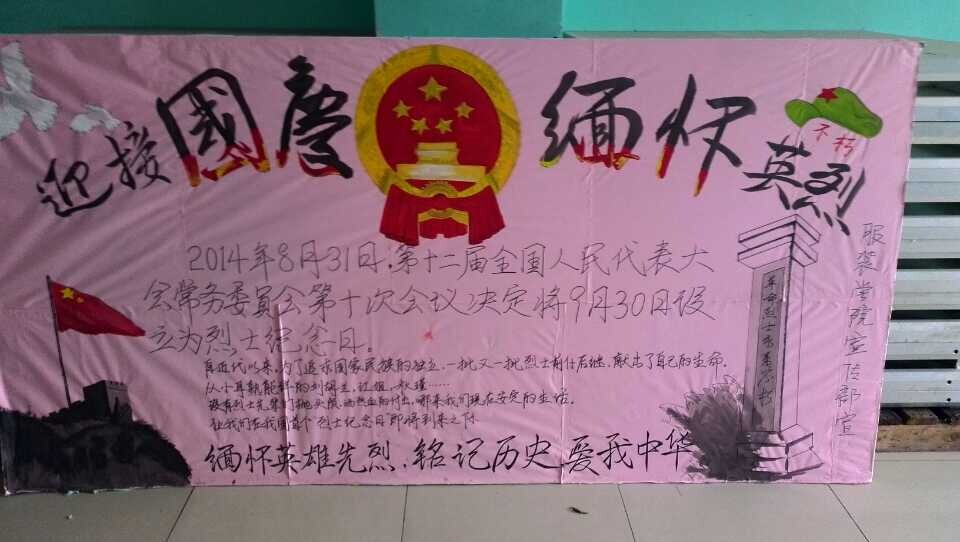 迎接 國慶 缅怀 英烈
不朽
2014年8月31日,第十二届全国人民代表大
会常务委员会第十次会议决定将9月30日设
立为烈士纪念日。
自近代以来,为了追求国家民族的独立,一批又一批烈士前仆后继,献出了自己的生命。
从小耳熟能详的刘胡兰,江姐,秋瑾……
没有烈士先辈们抛头颅,洒热血的付出,哪来我们现在安定的生活。
让我们在我国首个烈士纪念日即将到来之际
缅怀英雄先烈.铭记历史 爱我中华
革命烈士永垂不朽
服装学院宣传部宣